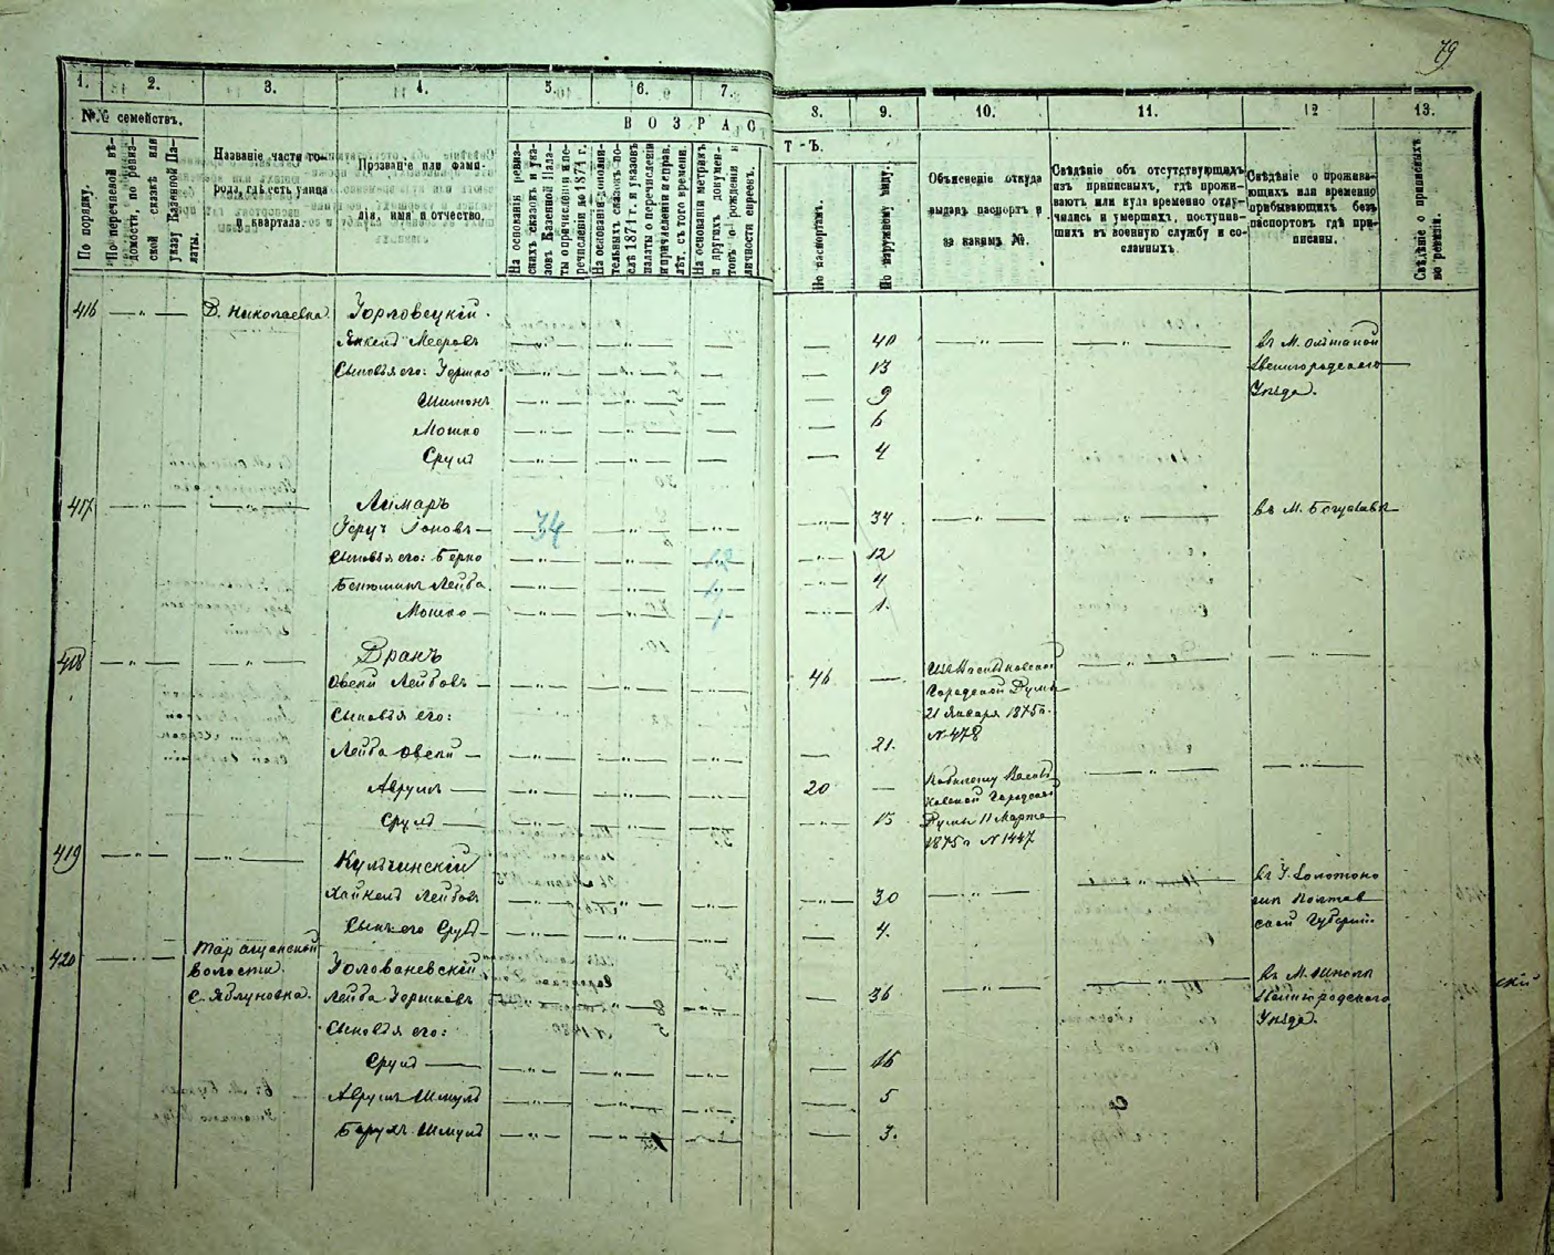 79
1. 2. 3. 4. 5. 6. 7. 8. 9. 10. 11. 12 13.
№№ семействъ.
По порядку.
По перечневой вѣ-
домости, по ревиз-
ской сказкѣ или
указу Казенной Па-
латы.
Названіе части го-
рода, гдѣ есть улица
и квартала.
Прозваніе или фами-
лія, имя и отчество.
ВОЗРАСТЪ.
На основаніи ревиз-
скихъ сказокъ и ука-
зовъ Казенной Пала-
ты о причисленіи и пе-
речисленіи до 1874 г.
На основаніи дополни-
тельныхъ сказокъ по-
слѣ 1874 г. и указовъ
палаты о перечисленіи
и причисленіи и справ.
лѣт. съ того времени.
На основаніи метрикъ
и другихъ докумен-
товъ о рожденіи и
личности евреевъ.
По паспортамъ.
По наружному виду.
Объясненіе откуда
выданъ паспортъ и
за какимъ №.
Свѣдѣніе объ отсутствующихъ
изъ приписныхъ, гдѣ прожи-
ваютъ или куда временно отлу-
чились и умершихъ, поступив-
шихъ въ военную службу и со-
сланныхъ.
Свѣдѣніе о прожива-
ющихъ или временно
прибывающихъ безъ
паспортовъ гдѣ при-
писаны.
Свѣдѣніе о приписныхъ
по ревизіи.
416 — „ — Д. Николаевка Горловецкій.
Янкель Мееровъ — „ — — „ — — — 40 — „ — — „ — въ М. Ольшаной
Сыновья его: Гершко — „ — — „ — — — 13 Звенигородскаго
Шимонъ — „ — — „ — — — 9 Уѣзда.
Мошко — „ — — „ — — — 6
Сруль — „ — — „ — — — 4
417 — „ — — „ — Лимаръ
— „ — 34 — „ — — „ — въ М. Богуславѣ
34
Сыновья его: Берко — „ — — „ — 12 — „ — 12
Бенюминъ Лейба — „ — — „ — — „ — 4
Мошко — — „ — — „ — 1 — „ — 1.
418 — „ — — „ — Дранъ
Овсей Лейбовъ — — „ — — „ — — „ — 46 — Изъ Васильковской
Городской Думы
Сыновья его: 21 Января 1875 г.
№ 478
Лейба Овсей — — „ — — „ — — „ — — 21.
Аврумъ — — „ — — „ — — „ — 20 — Васильковской Городской
Сруль — — „ — — „ — — „ — — „ — 15 Думы 11 Марта
1875 г № 1447
419 — „ — — „ — Кульчинскій
Хайкель Лейбовъ — „ — — „ — — „ — — „ — 30 — „ — — „ — въ Г. Золотоно
Полтав
Сынъ его Сруль — — „ — — „ — — „ — — 4. ской Губерніи.
420 — „ — волости. Голованевскій
С. Яблуновка. Лейба Гершковъ — „ — — „ — — „ — — 36 — „ — — „ — въ М. Шпола
Звенигородскаго
Уѣзда.
Сыновья его:
Сруль — — „ — — „ — — „ — — 16
Аврумъ Шмуль — „ — — „ — — „ — — 5
Барухъ Шмуль — „ — — „ — — „ — — 3.